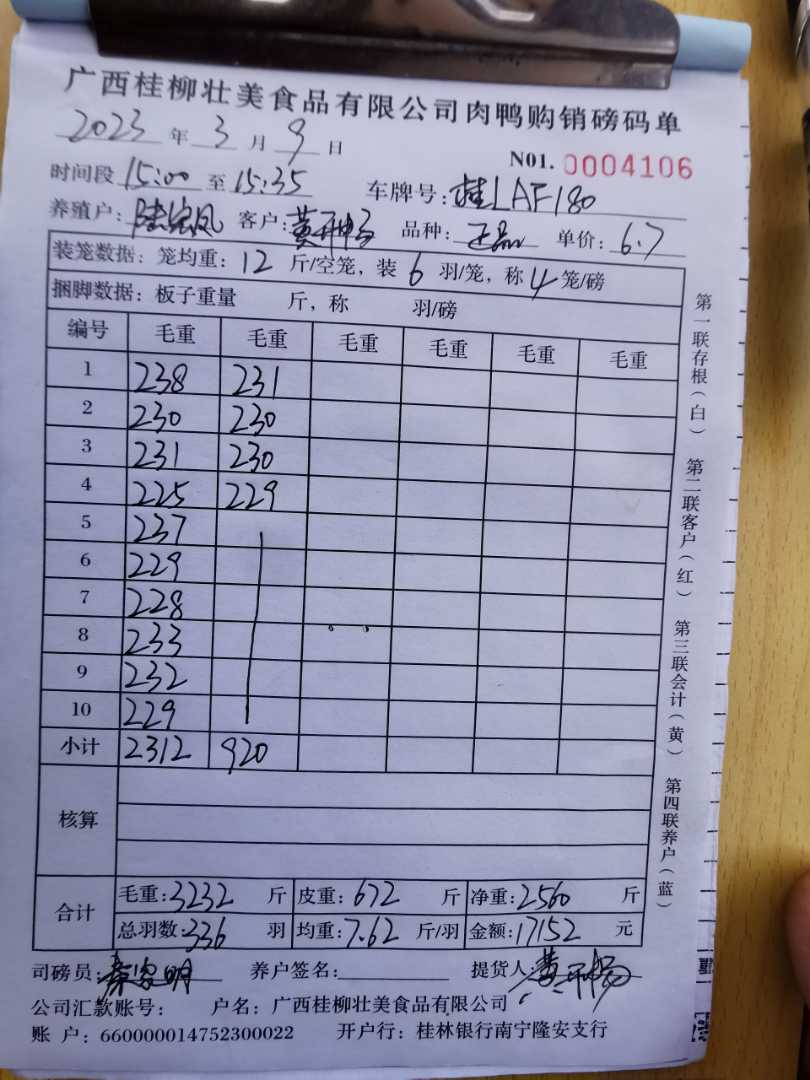 广西桂柳壮美食品有限公司肉鸭购销磅码单
2023年3月9日
N01. 0004106
时间段15:00至15:35 车牌号:桂LAF180
养殖户: 客户: 品种:正品 单价:6.7
装笼数据:笼均重:12斤/空笼,装6羽/笼,称4笼/磅
捆脚数据:板子重量 斤,称 羽/磅
编号 毛重 毛重 毛重 毛重 毛重 毛重
1 238 231
2 230 230
3 231 230
4 225 229
5 237
6 229
7 228
8 233
9 232
10 229
小计 2312 920
核算
合计 毛重:3232斤 皮重:672斤 净重:2560斤
总羽数:336羽 均重:7.62斤/羽 金额:17152元
司磅员: 养户签名: 提货人:
公司汇款账号: 户名:广西桂柳壮美食品有限公司
账 户:660000014752300022 开户行:桂林银行南宁隆安支行
第一联存根(白)
第二联客户(红)
第三联会计(黄)
第四联养户(蓝)